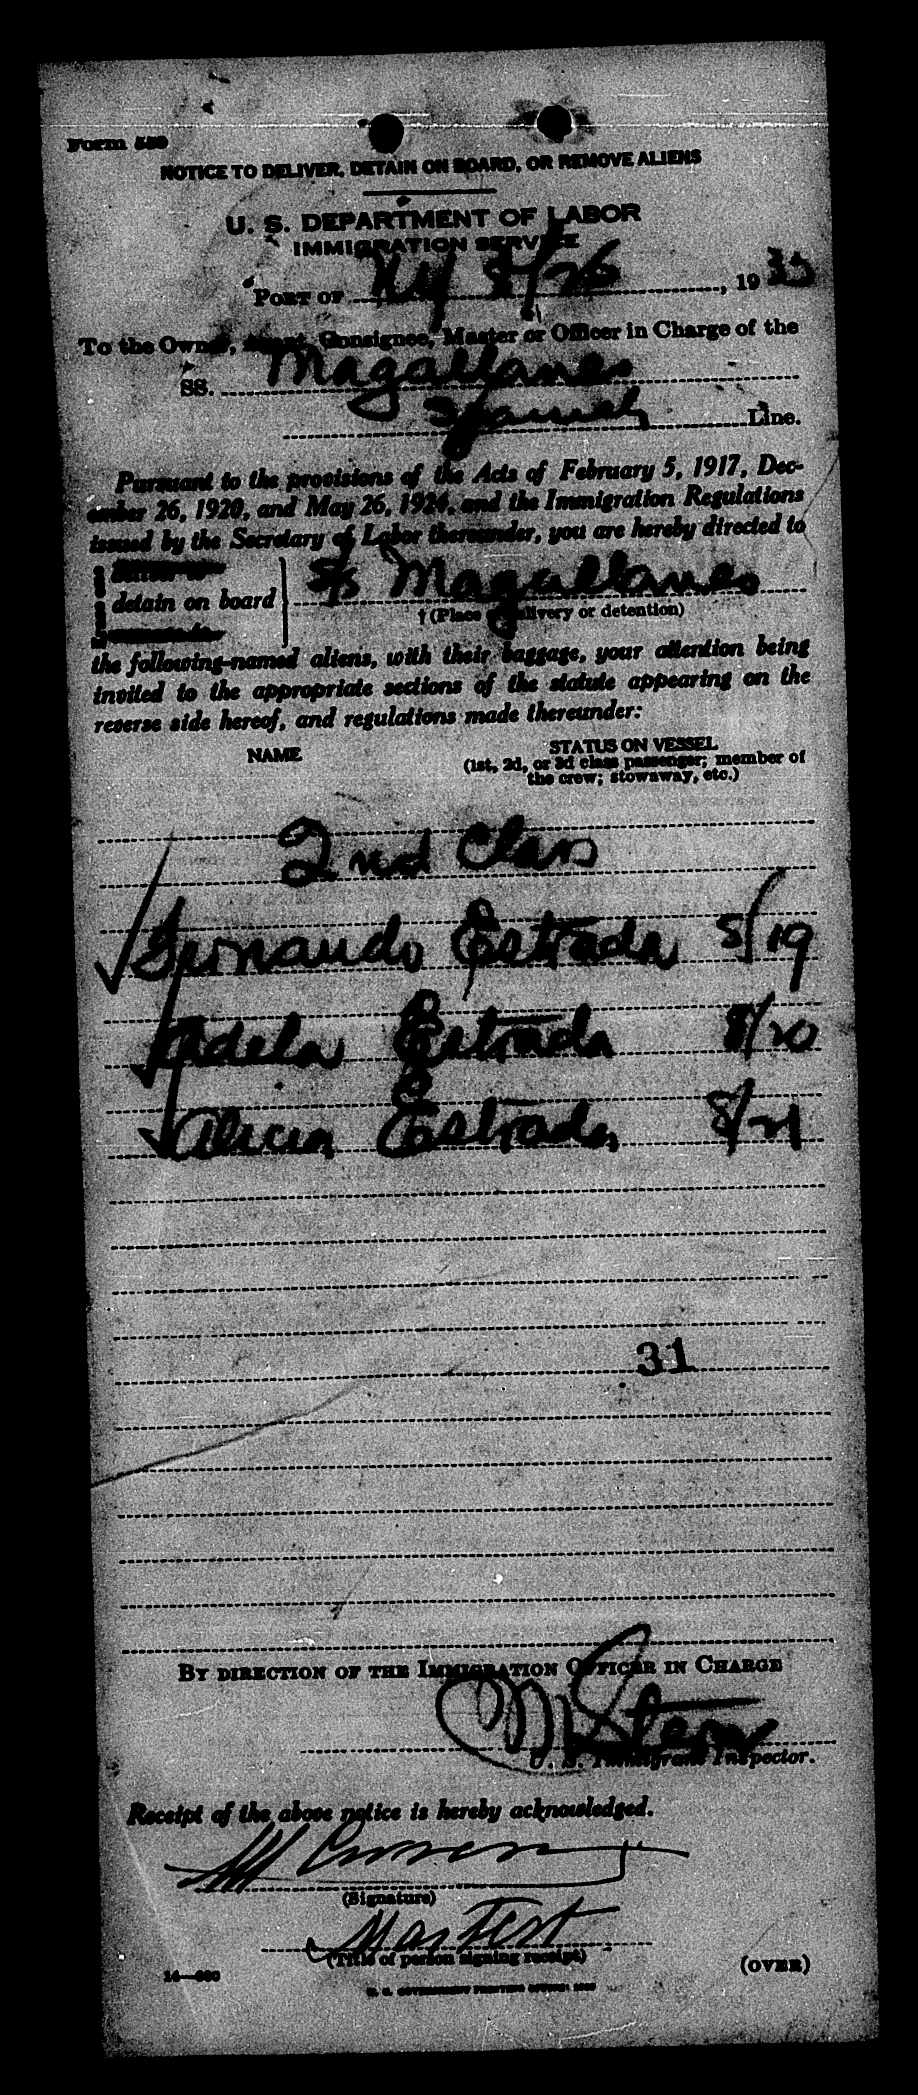 Form 580
NOTICE TO DELIVER, DETAIN ON BOARD, OR REMOVE ALIENS
U. S. DEPARTMENT OF LABOR
IMMIGRATION SERVICE
PORT OF NY 8/26, 1933
To the Owner, Agent, Consignee, Master or Officer in Charge of the
SS. Magallanes
Spanish Line.
Pursuant to the provisions of the Acts of February 5, 1917, Dec-
ember 26, 1920, and May 26, 1924, and the Immigration Regulations
issued by the Secretary of Labor thereunder, you are hereby directed to
detain on board } S/S Magallanes
† (Place of delivery or detention)
the following-named aliens, with their baggage, your attention being
invited to the appropriate sections of the statute appearing on the
reverse side hereof, and regulations made thereunder:
NAME
STATUS ON VESSEL
(1st, 2d, or 3d class passenger; member of
the crew; stowaway, etc.)
2nd Class
Fernando Estrada 8/19
Adela Estrada 8/20
Alicia Estrada 8/21
31
BY DIRECTION OF THE IMMIGRATION OFFICER IN CHARGE
Stern
U. S. Immigrant Inspector.
Receipt of the above notice is hereby acknowledged.
(Signature)
(Title of person signing receipt)
(OVER)
U. S. GOVERNMENT PRINTING OFFICE: